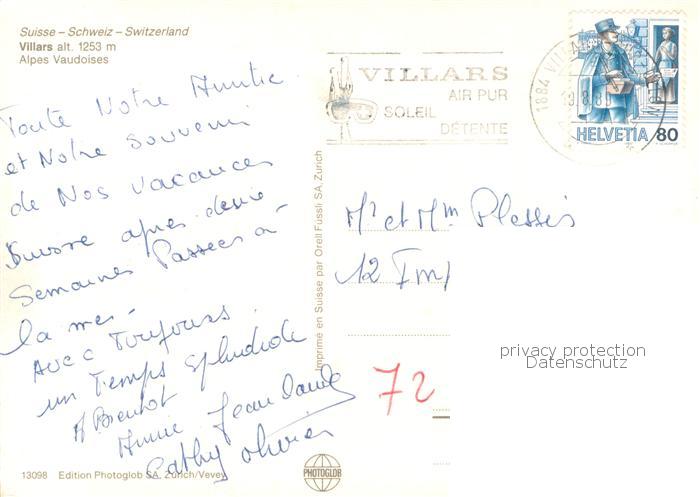 Suisse – Schweiz – Switzerland
Villars alt. 1253 m
Alpes Vaudoises
Toute Notre
et Notre Souvenir
de Nos vacances
Suisse apres
Semaines Passées à
la mer
Avec Toujours
un Temps Splendide
A Bientot
Annie Jean Claude
Cathy Olivier
13098 Edition Photoglob SA, Zürich/Vevey
PHOTOGLOB
Imprimé en Suisse par Orell Füssli SA, Zurich
VILLARS
AIR PUR
SOLEIL
DÉTENTE
1884 VILLARS
HELVETIA 80
Mr et Mm Plessis
12
72
privacy protection
Datenschutz